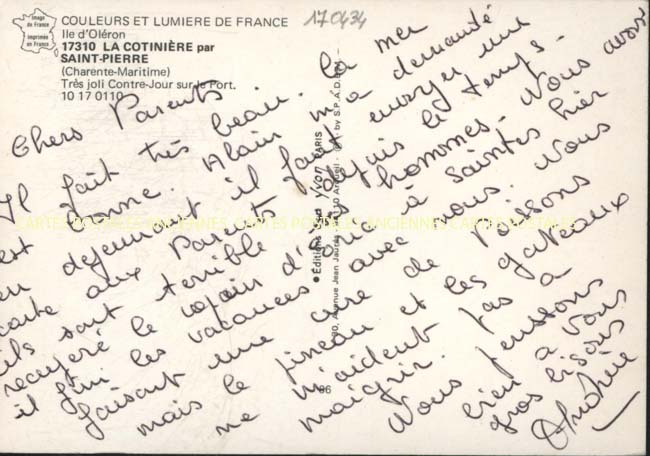 Image
de France
Imprimée
en France
COULEURS ET LUMIERE DE FRANCE
Ile d'Oléron
17310 LA COTINIÈRE par
SAINT-PIERRE
(Charente-Maritime)
Très joli Contre-Jour sur le Port.
10 17 0110
170434
Chers Parents
Il fait très beau. la mer
est bonne. Alain m'a demandé
en déjeunant il faut envoyer une
carte aux Parents depuis le temps.
ils sont terrible les hommes. Nous avons
recupéré le à Saintes hier
il fini les vacances avec nous. Nous
faisons une cure de Poisons
mais le pineau et les gateaux
ne m'aident pas à
maigrir. Nous pensons
bien à vous
gros bisous
Editions d'art yvon PARIS
Avenue Jean Jaurès
by S.P.A.D.E.M.
CARTES POSTALES ANCIENNES CARTES POSTALES ANCIENNES CARTES POSTALES ANCIENNES